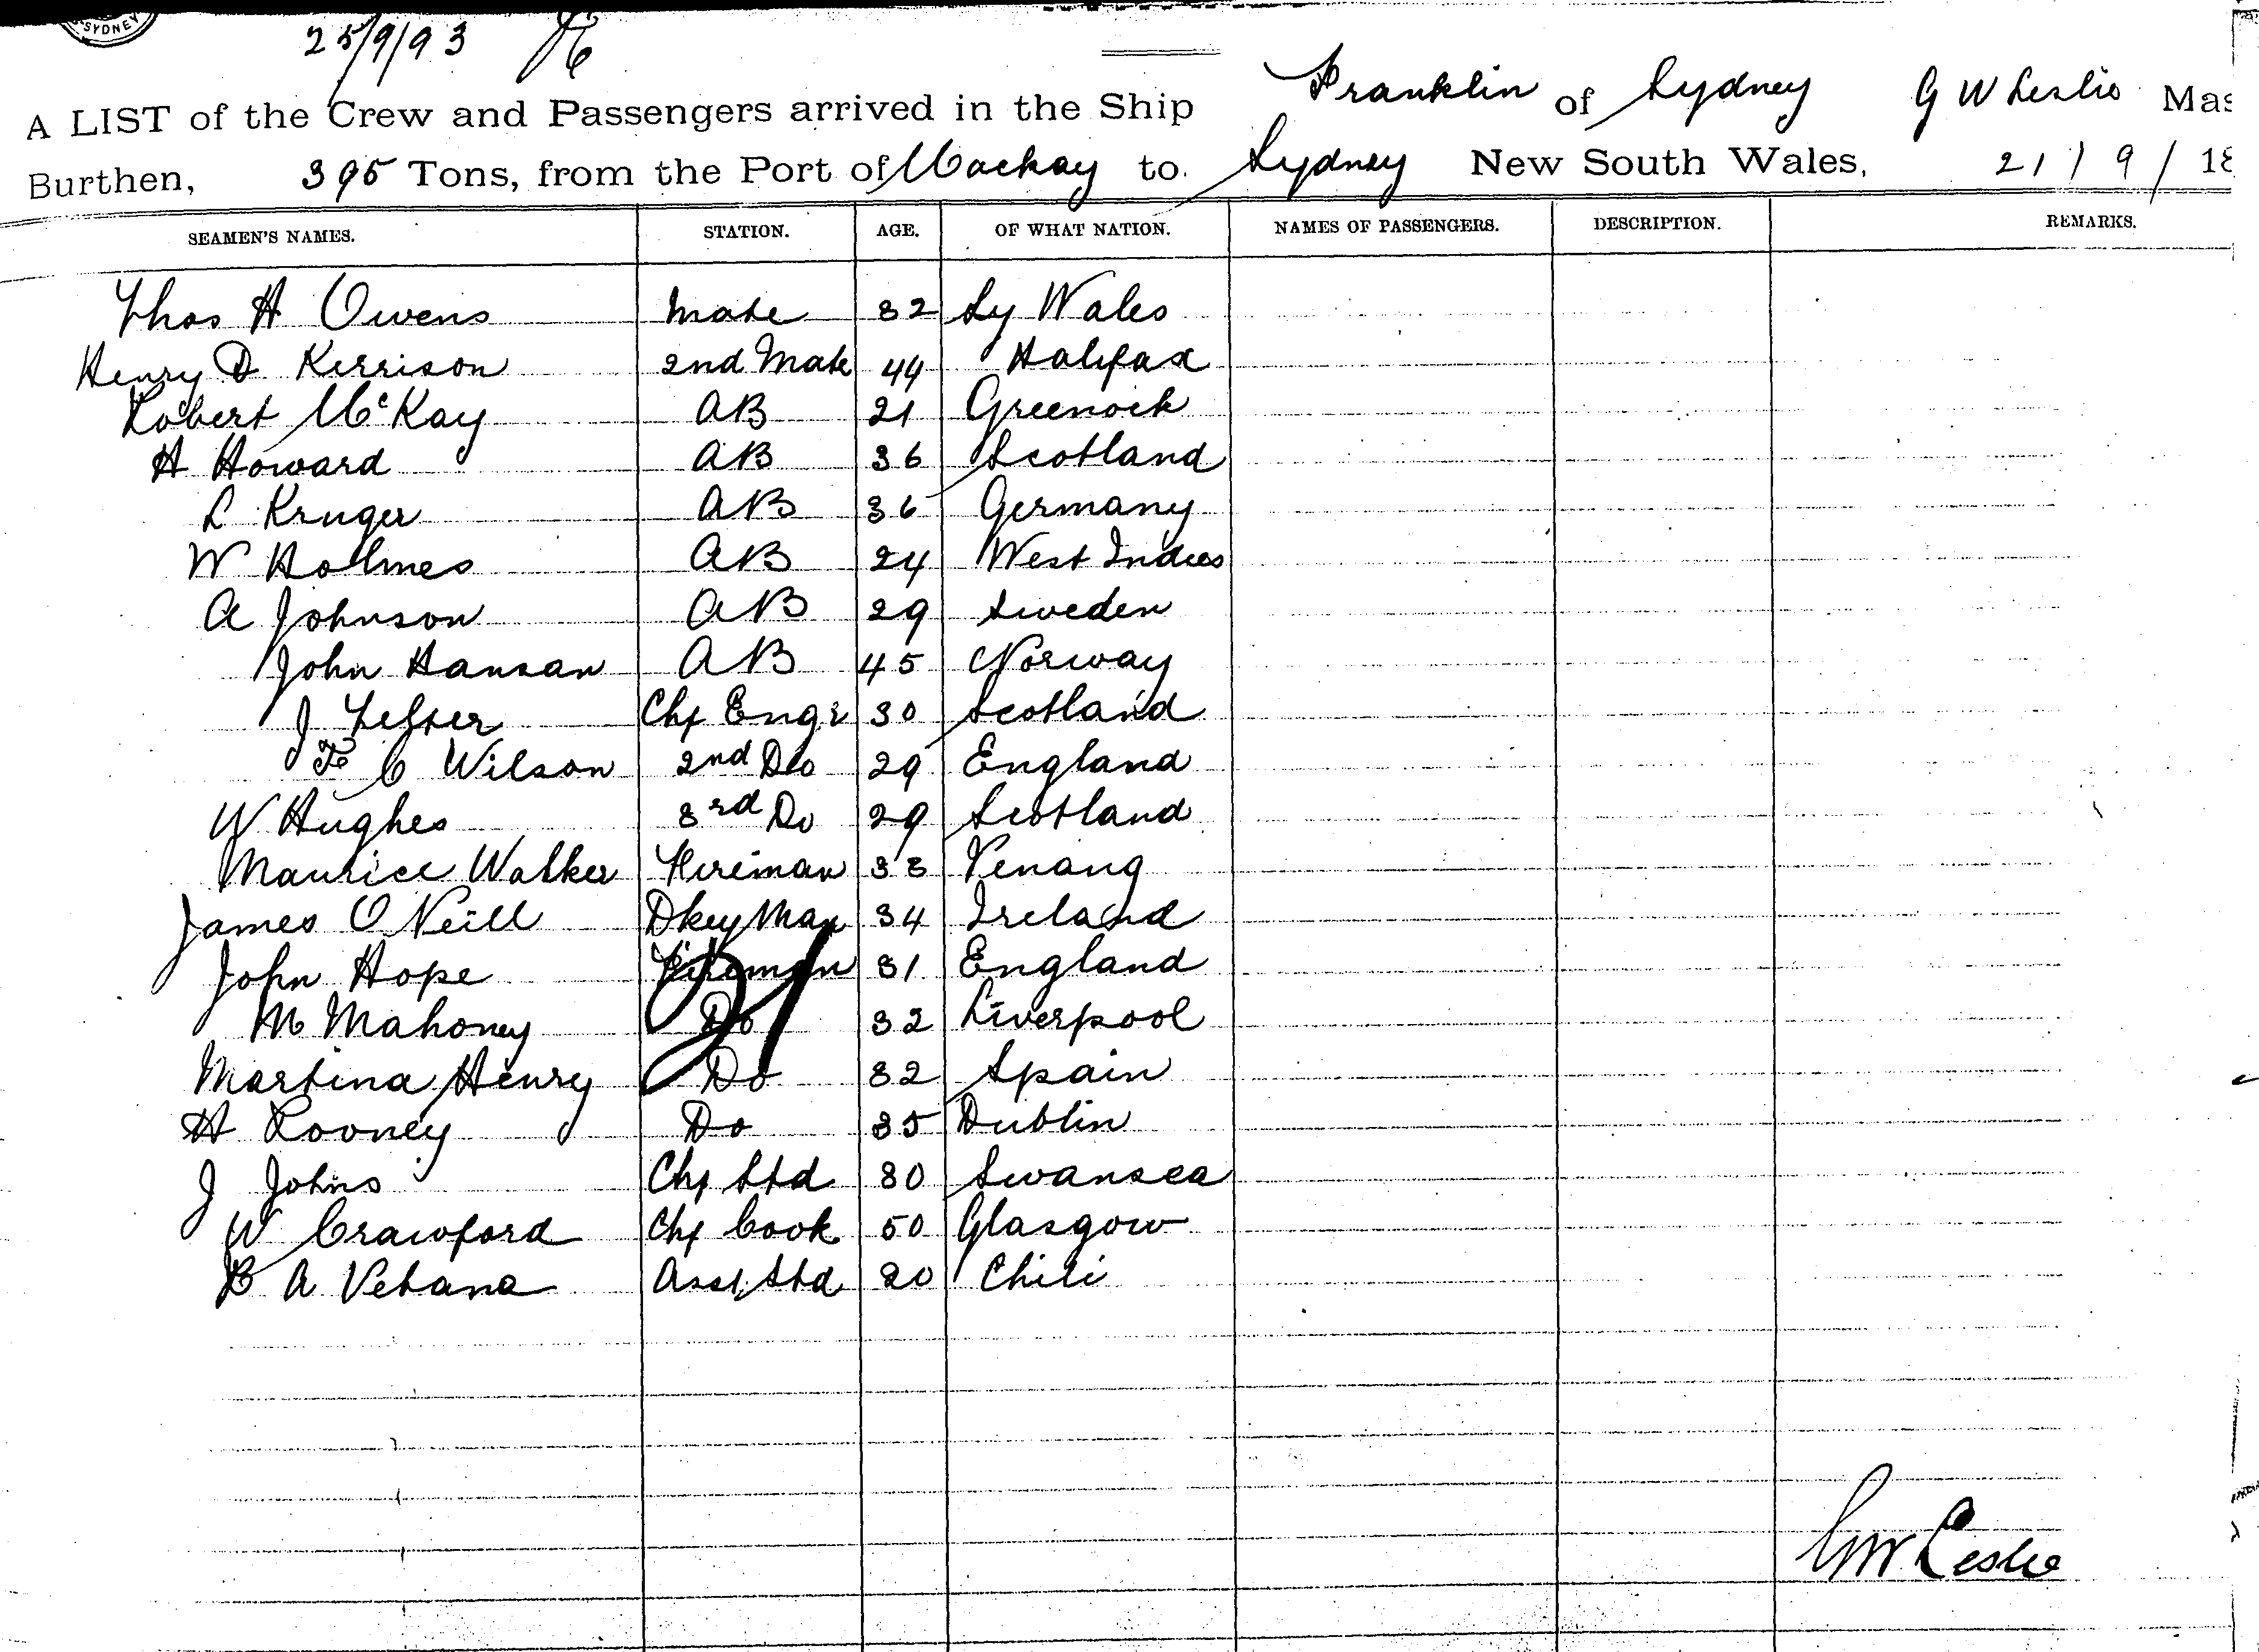 SYDNEY
25/9/93
A LIST of the Crew and Passengers arrived in the Ship Franklin of Sydney G W Leslie Mas
Burthen, 395 Tons, from the Port of Mackay to Sydney New South Wales, 21/9/18
SEAMEN'S NAMES. STATION. AGE. OF WHAT NATION. NAMES OF PASSENGERS. DESCRIPTION. REMARKS.
Thos H Owens Mate 32 Sy Wales
Henry D Kerrison 2nd Mate 44 Halifax
Robert McKay AB 21 Greenock
H Howard AB 36 Scotland
L Kruger AB 36 Germany
W Holmes AB 24 West Indies
A Johnson AB 29 Sweden
John Hansan AB 45 Norway
J Chf Engr 30 Scotland
F C Wilson 2nd Do 29 England
W Hughes 3rd Do 29 Scotland
Maurice Walker Fireman 33 Penang
James O Neill Dkey Man 34 Ireland
John Hope Fireman 31 England
M Mahoney Do 32 Liverpool
21
Martina Henry Do 32 Spain
H Rooney Do 35 Dublin
J Johns Chf Std 30 Swansea
W Crawford Chf Cook 50 Glasgow
B A Vebana Asst Std 20 Chili
GW Leslie